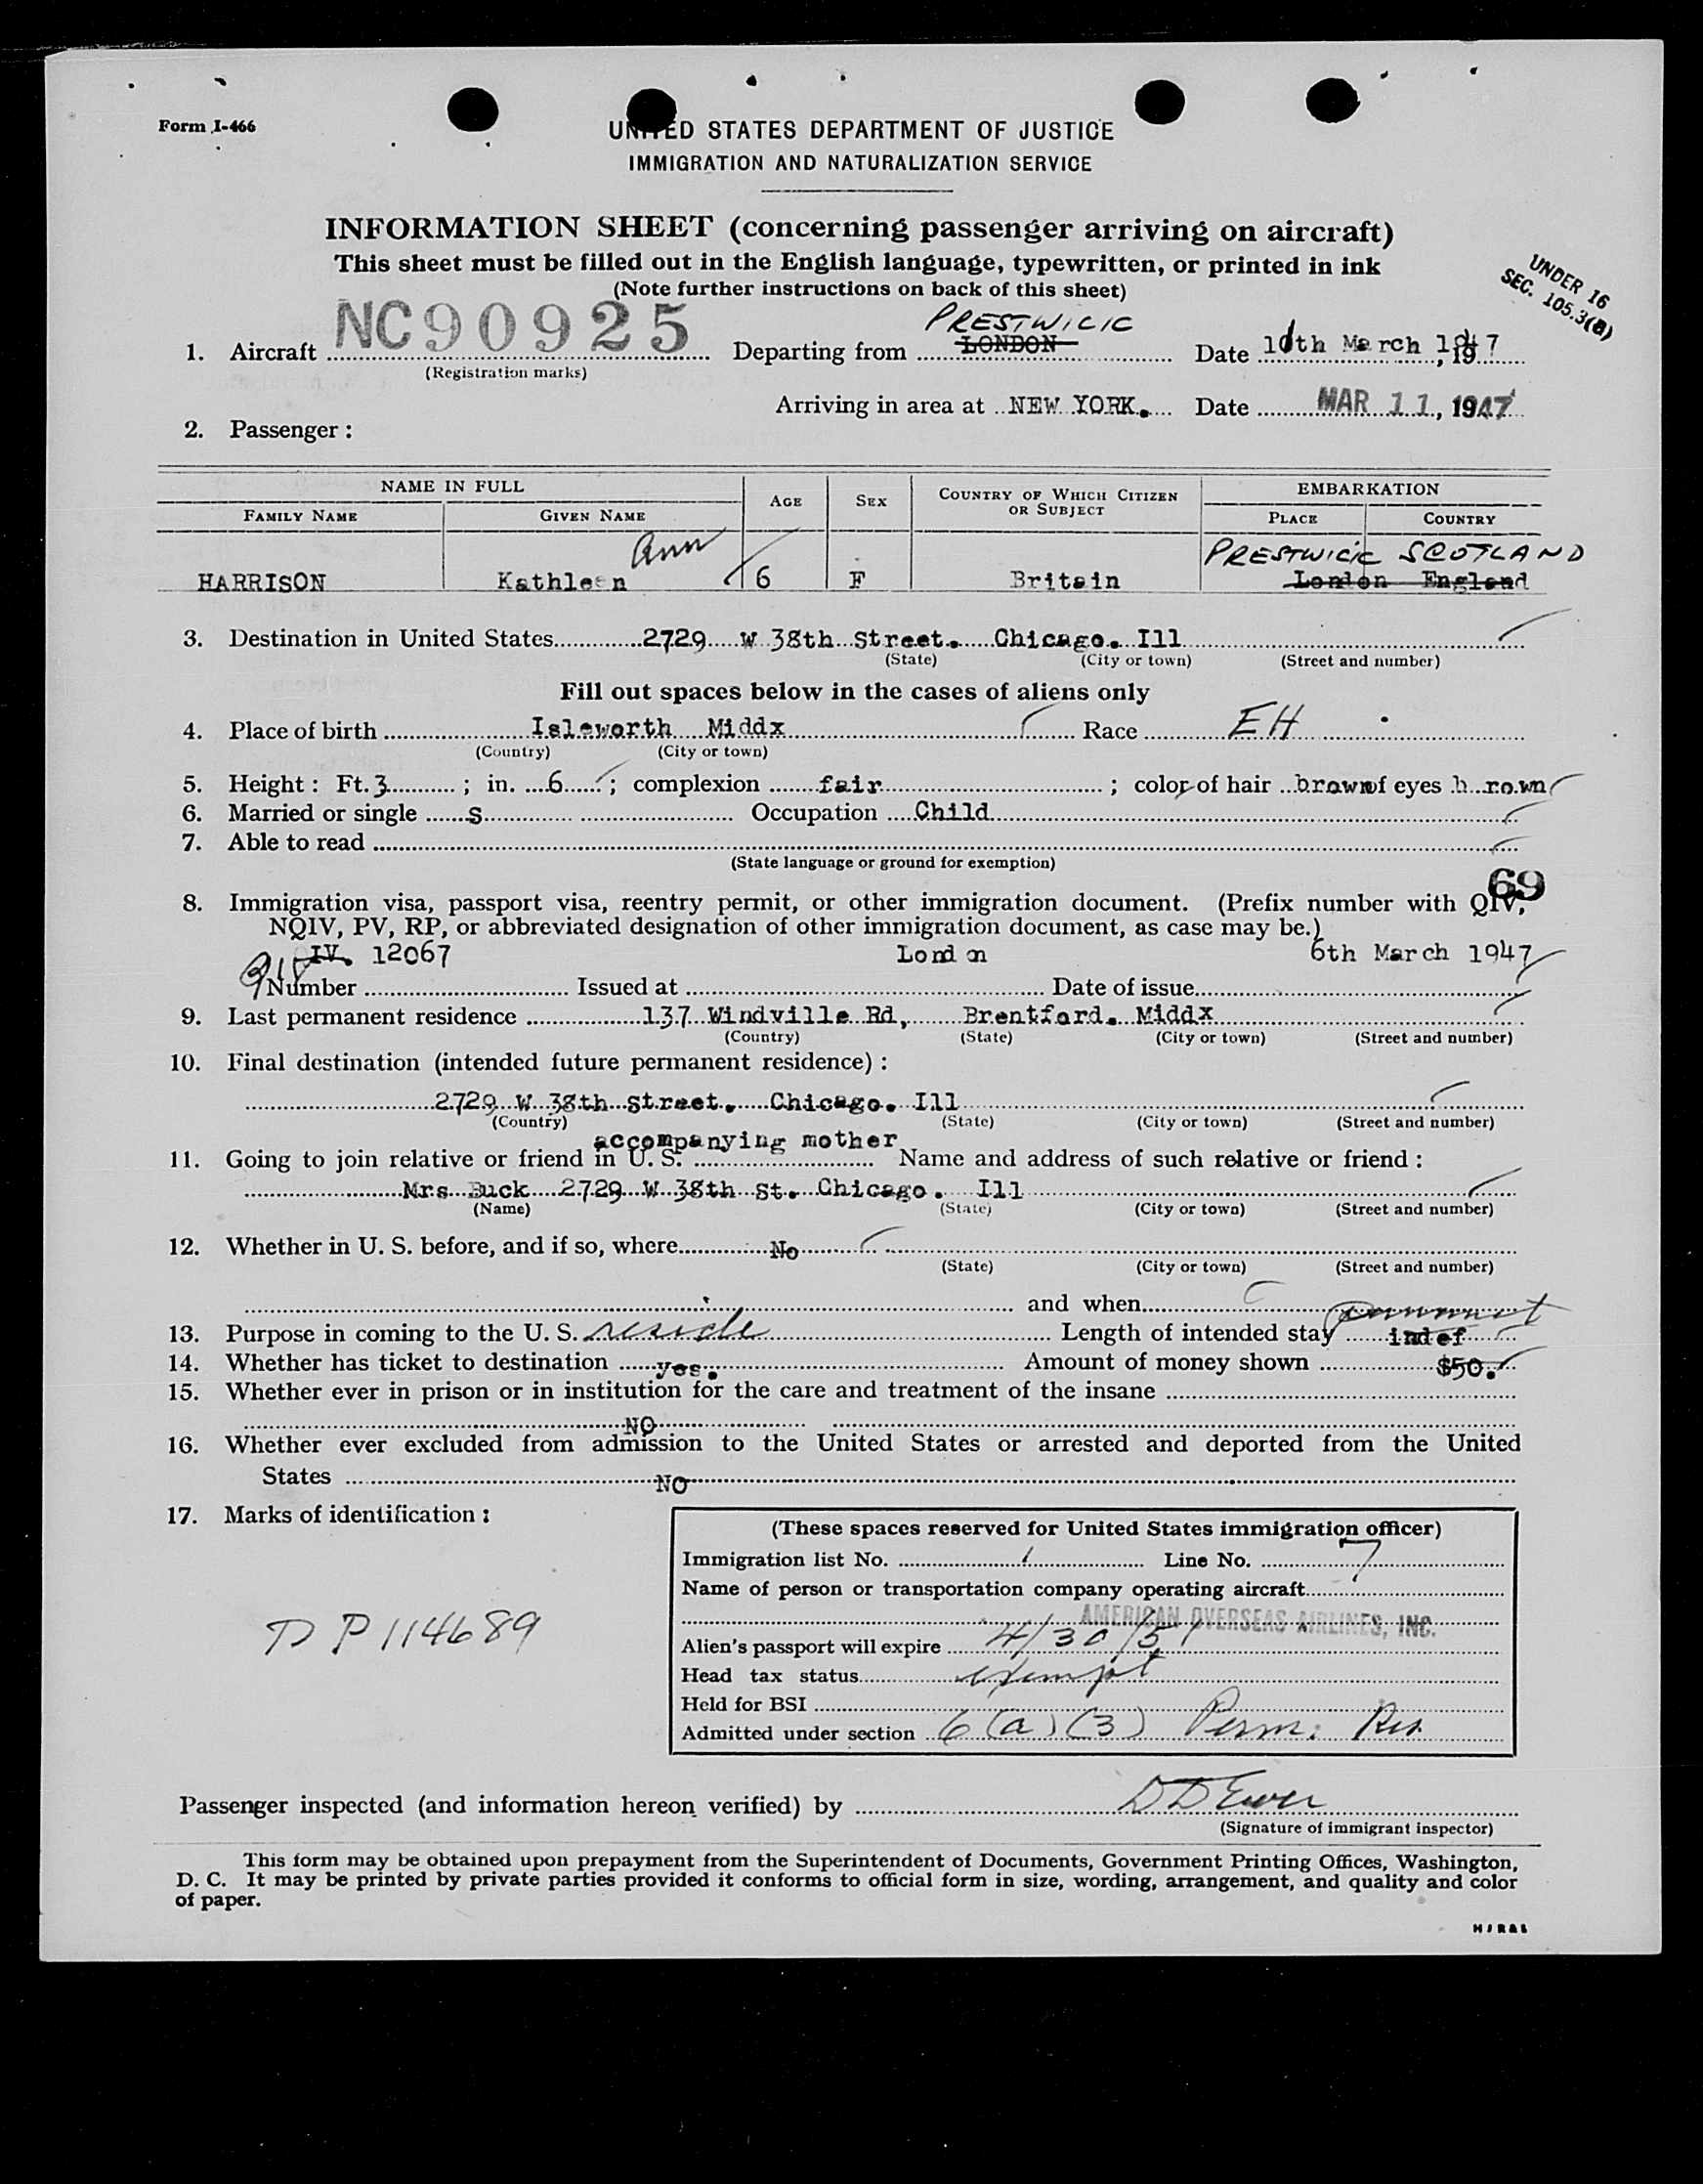 Form I-466
UNITED STATES DEPARTMENT OF JUSTICE
IMMIGRATION AND NATURALIZATION SERVICE
INFORMATION SHEET (concerning passenger arriving on aircraft)
This sheet must be filled out in the English language, typewritten, or printed in ink
(Note further instructions on back of this sheet)
UNDER 16
SEC. 105.3(B)
PRESTWICK
1. Aircraft NC90925 Departing from LONDON Date 10th March, 1947
(Registration marks)
Arriving in area at NEW YORK. Date MAR 11, 1947
2. Passenger:
NAME IN FULL AGE SEX COUNTRY OF WHICH CITIZEN OR SUBJECT EMBARKATION
FAMILY NAME GIVEN NAME PLACE COUNTRY
Ann PRESTWICK SCOTLAND
HARRISON Kathleen 6 F Britain London England
3. Destination in United States 2729 W 38th Street. Chicago. Ill
(State) (City or town) (Street and number)
Fill out spaces below in the cases of aliens only
4. Place of birth Isleworth Middx Race EH
(Country) (City or town)
5. Height: Ft. 3; in. 6; complexion fair; color of hair brown of eyes brown
6. Married or single S Occupation Child
7. Able to read
(State language or ground for exemption)
69
8. Immigration visa, passport visa, reentry permit, or other immigration document. (Prefix number with QIV,
NQIV, PV, RP, or abbreviated designation of other immigration document, as case may be.)
QIV IV. 12067 London 6th March 1947
Number Issued at Date of issue
9. Last permanent residence 137 Windville Rd, Brentford. Middx
(Country) (State) (City or town) (Street and number)
10. Final destination (intended future permanent residence):
2729 W 38th Street. Chicago. Ill
(Country) (State) (City or town) (Street and number)
accompanying mother
11. Going to join relative or friend in U. S. Name and address of such relative or friend:
Mrs Buck 2729 W 38th St. Chicago. Ill
(Name) (State) (City or town) (Street and number)
12. Whether in U. S. before, and if so, where No
(State) (City or town) (Street and number)
and when
permanent
13. Purpose in coming to the U. S. reside Length of intended stay indef
14. Whether has ticket to destination yes. Amount of money shown $50.
15. Whether ever in prison or in institution for the care and treatment of the insane
NO
16. Whether ever excluded from admission to the United States or arrested and deported from the United
States NO
17. Marks of identification:
DP114689
(These spaces reserved for United States immigration officer)
Immigration list No. 1 Line No. 7
Name of person or transportation company operating aircraft
AMERICAN OVERSEAS AIRLINES, INC.
Alien's passport will expire 4/30/51
Head tax status exempt
Held for BSI
Admitted under section 6(a)(3) Perm. Res.
Passenger inspected (and information hereon verified) by DD Ewer
(Signature of immigrant inspector)
This form may be obtained upon prepayment from the Superintendent of Documents, Government Printing Offices, Washington,
D. C. It may be printed by private parties provided it conforms to official form in size, wording, arrangement, and quality and color
of paper.